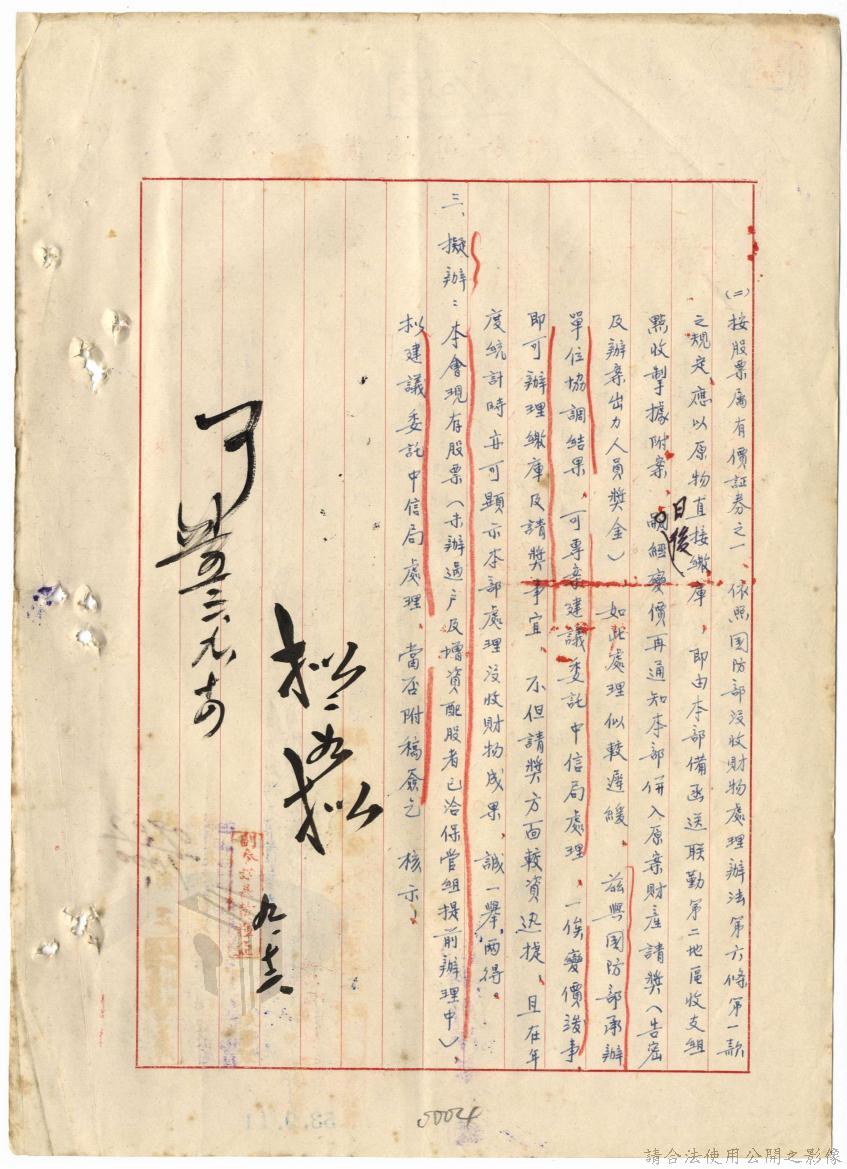 (二)按股票屬有價証券之一、依照國防部沒收財物處理辦法第六條第一款
之規定、應以原物直接繳庫、即由本部備函送聯勤第二地區收支組
點收掣據附案、日後經變價再通知本部併入原案財產請獎（告密
及辦案出力人員獎金）如此處理似較遲緩、茲與國防部承辦
單位協調結果、可專案建議委託中信局處理、一俟變價後事
即可辦理繳庫及請獎事宜、不但請獎方面較資迅捷、且在年
度統計時亦可顯示本部處理沒收財物成果、誠一舉兩得。
三、擬辦：本會現存股票（未辦過戶及增資配股者已洽保管組提前辦理中）、
擬建議委託中信局處理、當否附稿簽乞 核示！
擬
擬
九.十二
可
0004
請合法使用公開之影像